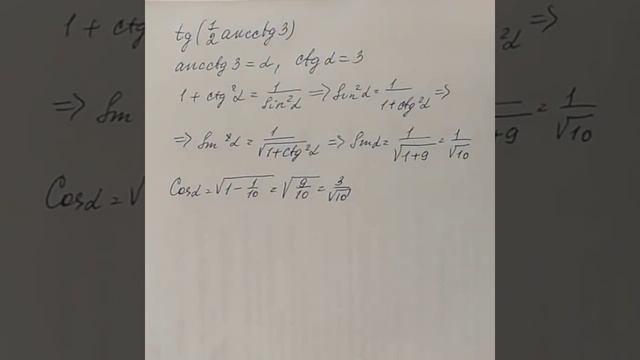 tg(1/2 arcctg 3)
arcctg 3 = α, ctg α = 3
1 + ctg²α = 1/Sin²α ⇒ Sin²α = 1/(1+ctg²α) ⇒
⇒ Sin²α = 1/√(1+ctg²α) ⇒ Sinα = 1/√(1+9) = 1/√10
Cosα = √(1 - 1/10) = √(9/10) = 3/√10